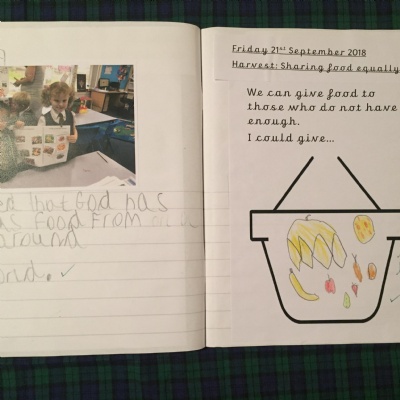 ed that God has
us food from
around
orld. ✓
Friday 21st September 2018
Harvest: Sharing food equally
We can give food to
those who do not have
enough.
I could give...